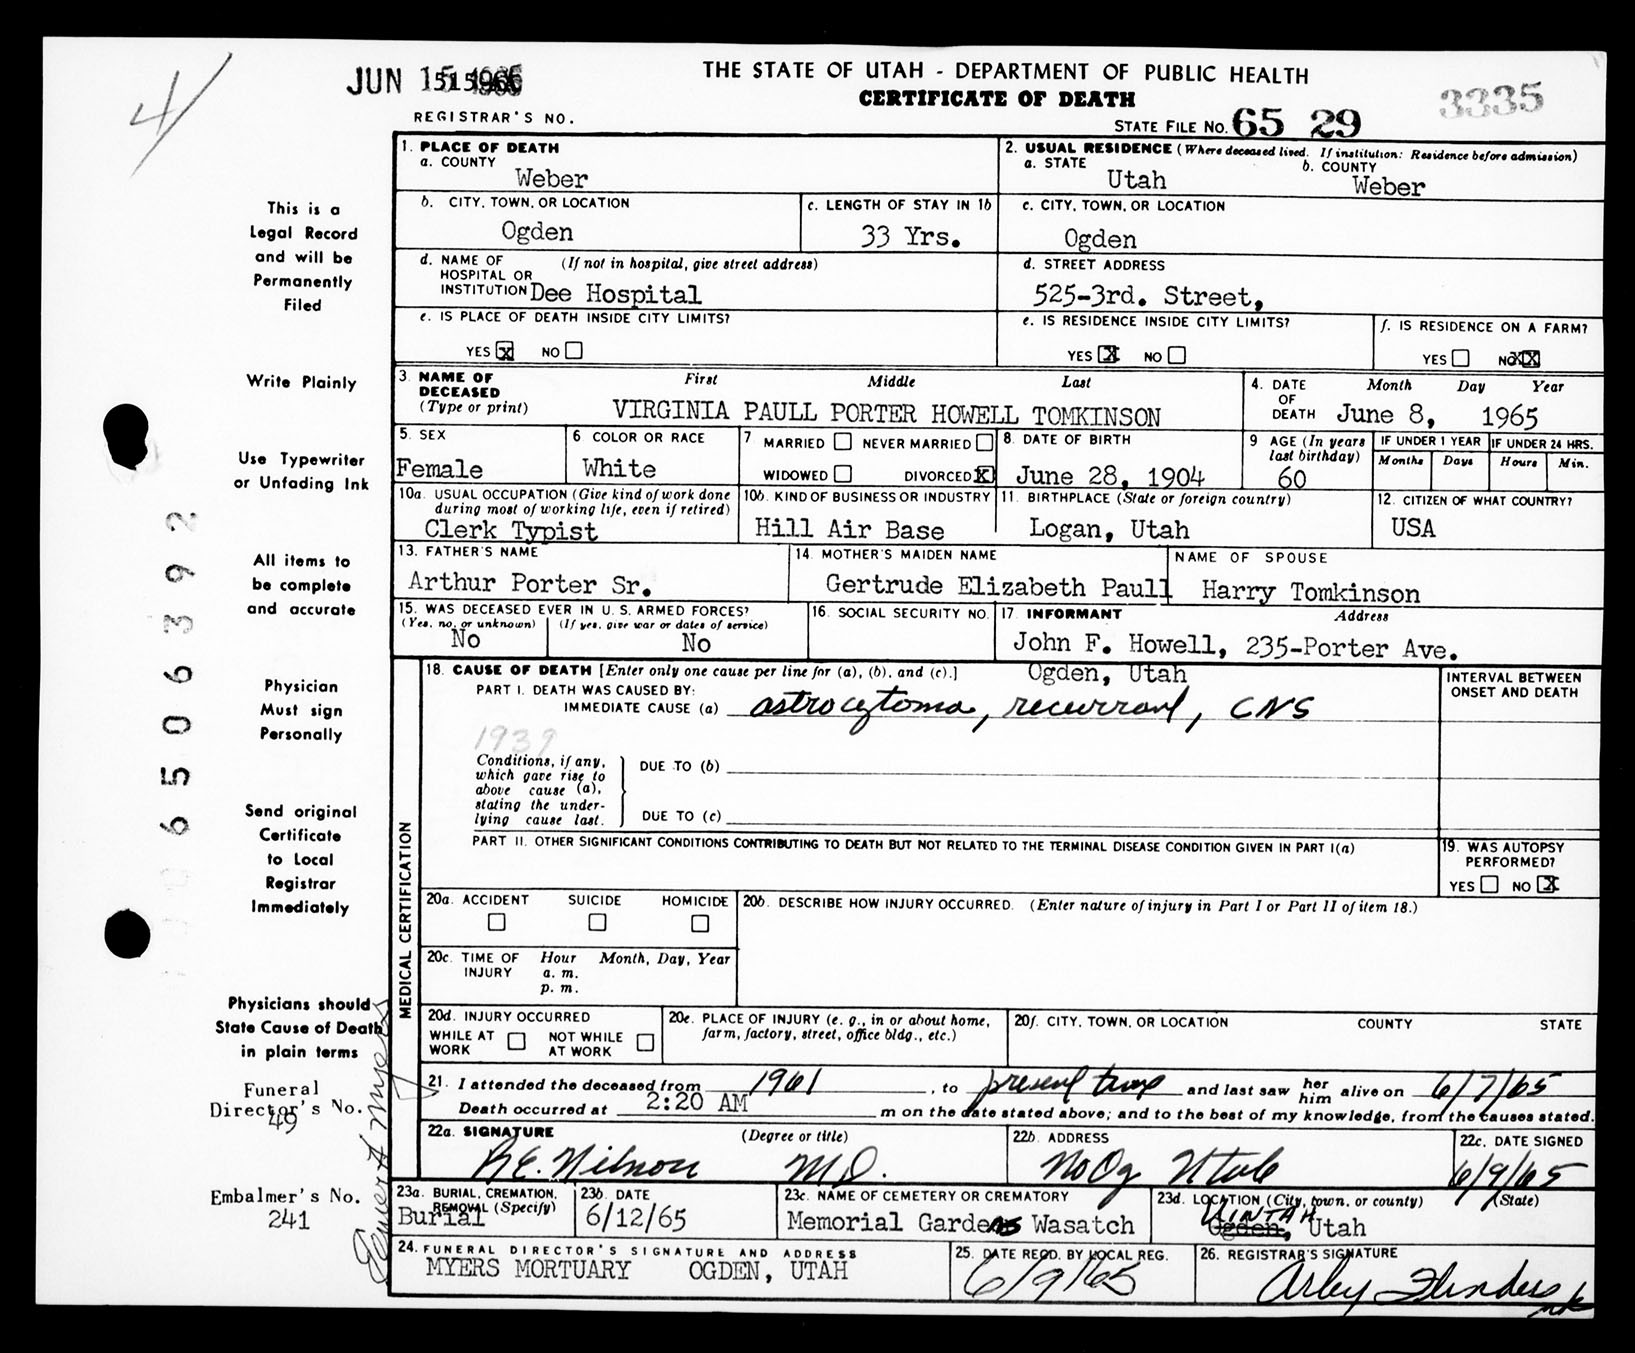 JUN 15 1965
THE STATE OF UTAH - DEPARTMENT OF PUBLIC HEALTH
CERTIFICATE OF DEATH
3335
REGISTRAR'S NO.
STATE FILE NO. 65 29
4
This is a
Legal Record
and will be
Permanently
Filed
Write Plainly
Use Typewriter
or Unfading Ink
All items to
be complete
and accurate
Physician
Must sign
Personally
Send original
Certificate
to Local
Registrar
Immediately
Physicians should
State Cause of Death
in plain terms
Funeral
Director's No.
49
Embalmer's No.
241
6506392
1. PLACE OF DEATH
a. COUNTY
Weber
2. USUAL RESIDENCE (Where deceased lived. If institution: Residence before admission)
a. STATE b. COUNTY
Utah Weber
b. CITY, TOWN, OR LOCATION
Ogden
c. LENGTH OF STAY IN 1b
33 Yrs.
c. CITY, TOWN, OR LOCATION
Ogden
d. NAME OF (If not in hospital, give street address)
HOSPITAL OR
INSTITUTION Dee Hospital
d. STREET ADDRESS
525-3rd. Street,
e. IS PLACE OF DEATH INSIDE CITY LIMITS?
YES X NO
e. IS RESIDENCE INSIDE CITY LIMITS?
YES X NO
f. IS RESIDENCE ON A FARM?
YES NO X
3. NAME OF First Middle Last
DECEASED
(Type or print) VIRGINIA PAULL PORTER HOWELL TOMKINSON
4. DATE Month Day Year
OF
DEATH June 8, 1965
5. SEX
Female
6. COLOR OR RACE
White
7 MARRIED NEVER MARRIED
WIDOWED DIVORCED X
8. DATE OF BIRTH
June 28, 1904
9 AGE (In years
last birthday)
60
IF UNDER 1 YEAR IF UNDER 24 HRS.
Months Days Hours Min.
10a. USUAL OCCUPATION (Give kind of work done
during most of working life, even if retired)
Clerk Typist
10b. KIND OF BUSINESS OR INDUSTRY
Hill Air Base
11. BIRTHPLACE (State or foreign country)
Logan, Utah
12. CITIZEN OF WHAT COUNTRY?
USA
13. FATHER'S NAME
Arthur Porter Sr.
14. MOTHER'S MAIDEN NAME
Gertrude Elizabeth Paull
NAME OF SPOUSE
Harry Tomkinson
15. WAS DECEASED EVER IN U. S. ARMED FORCES?
(Yes, no, or unknown) (If yes, give war or dates of service)
No No
16. SOCIAL SECURITY NO.
17. INFORMANT Address
John F. Howell, 235-Porter Ave.
Ogden, Utah
MEDICAL CERTIFICATION
18. CAUSE OF DEATH [Enter only one cause per line for (a), (b), and (c).]
PART I. DEATH WAS CAUSED BY:
IMMEDIATE CAUSE (a) astrocytoma, recurrent, CNS
INTERVAL BETWEEN
ONSET AND DEATH
1939
Conditions, if any,
which gave rise to
above cause (a),
stating the under-
lying cause last.
DUE TO (b)
DUE TO (c)
PART II. OTHER SIGNIFICANT CONDITIONS CONTRIBUTING TO DEATH BUT NOT RELATED TO THE TERMINAL DISEASE CONDITION GIVEN IN PART I(a)
19. WAS AUTOPSY
PERFORMED?
YES NO X
20a. ACCIDENT SUICIDE HOMICIDE
20b. DESCRIBE HOW INJURY OCCURRED. (Enter nature of injury in Part I or Part II of item 18.)
20c. TIME OF Hour Month, Day, Year
INJURY a. m.
p. m.
20d. INJURY OCCURRED
WHILE AT NOT WHILE
WORK AT WORK
20e. PLACE OF INJURY (e. g., in or about home,
farm, factory, street, office bldg., etc.)
20f. CITY, TOWN, OR LOCATION COUNTY STATE
21. I attended the deceased from 1961, to present and last saw her him alive on 6/7/65
Death occurred at 2:20 AM m on the date stated above; and to the best of my knowledge, from the causes stated.
22a. SIGNATURE (Degree or title)
M.D.
22b. ADDRESS
No Og Utah
22c. DATE SIGNED
6/9/65
23a. BURIAL, CREMATION,
REMOVAL (Specify)
Burial
23b. DATE
6/12/65
23c. NAME OF CEMETERY OR CREMATORY
Memorial Gardens Wasatch
23d. LOCATION (City, town, or county) (State)
UINTAH
Ogden, Utah
24. FUNERAL DIRECTOR'S SIGNATURE AND ADDRESS
MYERS MORTUARY OGDEN, UTAH
25. DATE RECD. BY LOCAL REG.
6/9/65
26. REGISTRAR'S SIGNATURE
Arley Flinders